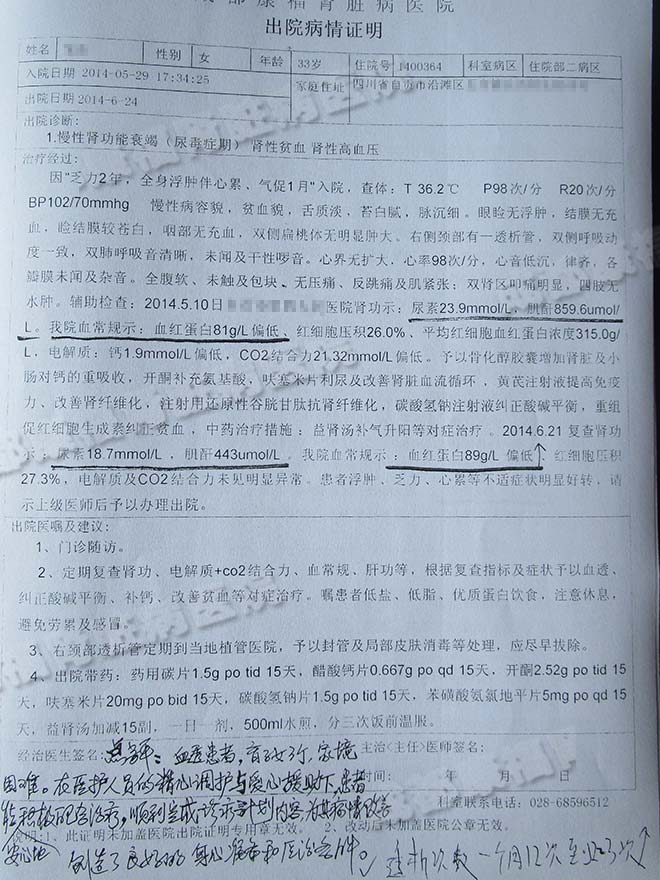 成都康福肾脏病医院
出院病情证明
姓名 性别 女 年龄 33岁 住院号 1400364 科室病区 住院部二病区
入院日期 2014-05-29 17:34:25 家庭住址 四川省自贡市沿滩区
出院日期 2014-6-24
出院诊断:
1.慢性肾功能衰竭（尿毒症期） 肾性贫血 肾性高血压
治疗经过:
因"乏力2年，全身浮肿伴心累、气促1月"入院，查体：T 36.2℃ P98次/分 R20次/分
BP102/70mmhg 慢性病容貌，贫血貌，舌质淡，苔白腻，脉沉细。眼睑无浮肿，结膜无充
血，睑结膜较苍白，咽部无充血，双侧扁桃体无明显肿大。右侧颈部有一透析管，双侧呼吸动
度一致，双肺呼吸音清晰，未闻及干性啰音。心界无扩大，心率98次/分，心音低沉，律齐，各
瓣膜未闻及杂音。全腹软、未触及包块、无压痛、反跳痛及肌紧张；双肾区叩痛明显，四肢无
水肿。辅助检查：2014.5.10日 医院肾功示：尿素23.9mmol/L、肌酐859.6umol/
L。我院血常规示：血红蛋白81g/L偏低、红细胞压积26.0%、平均红细胞血红蛋白浓度315.0g/
L，电解质：钙1.9mmol/L偏低，CO2结合力21.32mmol/L偏低。予以骨化醇胶囊增加肾脏及小
肠对钙的重吸收，开酮补充氨基酸，呋塞米片利尿及改善肾脏血流循环，黄芪注射液提高免疫
力、改善肾纤维化，注射用还原性谷胱甘肽抗肾纤维化，碳酸氢钠注射液纠正酸碱平衡，重组
促红细胞生成素纠正贫血，中药治疗措施：益肾汤补气升阳等对症治疗。2014.6.21复查肾功
示：尿素18.7mmol/L，肌酐443umol/L。我院血常规示：血红蛋白89g/L 偏低↑ 红细胞压积
27.3%，电解质及CO2结合力未见明显异常。患者浮肿、乏力、心累等不适症状明显好转，请
示上级医师后予以办理出院。
出院医嘱及建议:
1、门诊随访。
2、定期复查肾功、电解质+co2结合力、血常规、肝功等，根据复查指标及症状予以血透、
纠正酸碱平衡、补钙、改善贫血等对症治疗。嘱患者低盐、低脂、优质蛋白饮食，注意休息，
避免劳累及感冒。
3、右颈部透析管定期到当地植管医院，予以封管及局部皮肤消毒等处理，应尽早拔除。
4、出院带药：药用碳片1.5g po tid 15天，醋酸钙片0.667g po qd 15天，开酮2.52g po tid 15
天，呋塞米片20mg po bid 15天，碳酸氢钠片1.5g po tid 15天，苯磺酸氨氯地平片5mg po qd 15
天，益肾汤加减15副，一日一剂，500ml水煎，分三次饭前温服。
经治医生签名: 总评：血透患者，育2女1子，家境 主治(主任)医师签名:
困难。在医护人员的精心调护与爱心援助下，患者 时间: 年 月 日
能积极配合治疗，顺利完成诊疗计划内容，为其病情改善 科室联系电话：028-68596512
说明:1、此证明未加盖医院出院证明专用章无效。 2、改动后未加盖医院公章无效。
安心地 创造了良好的身心 和医治条件。 透析次数一个月12次至 3次↑